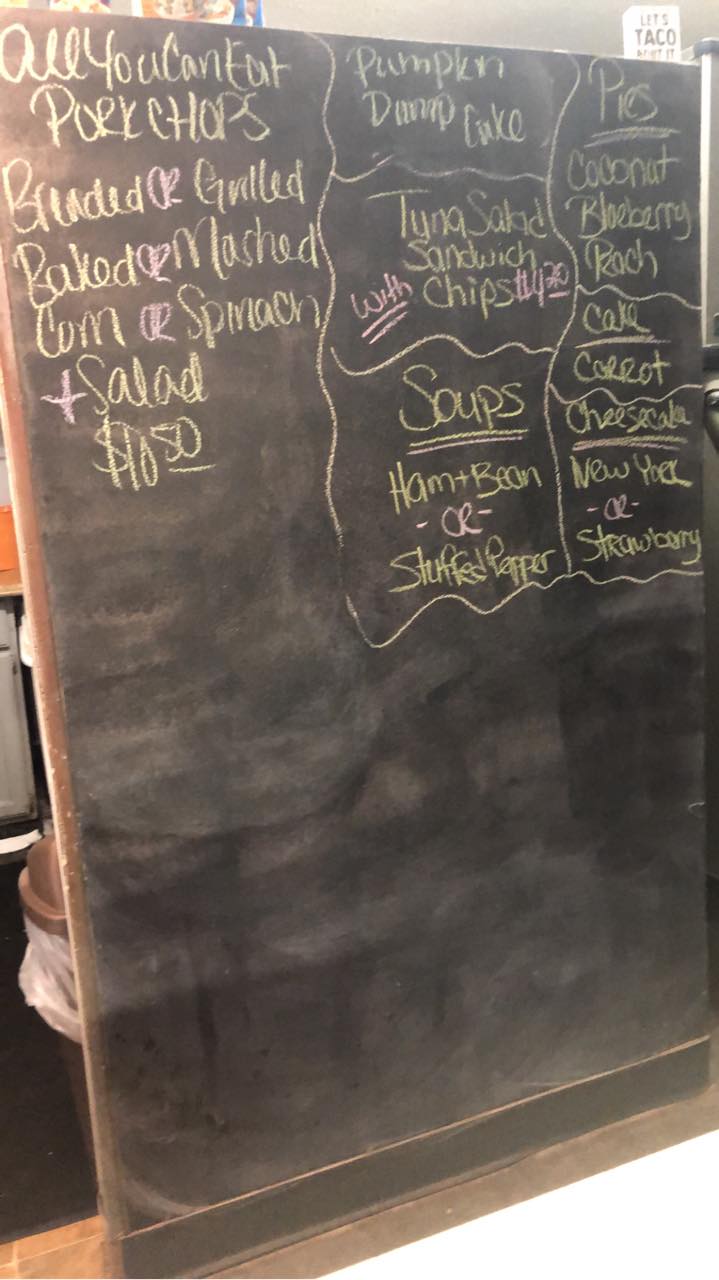 All You Can Eat
PORK CHOPS
Breaded OR Grilled
Baked or Mashed
Corn OR Spinach
+ Salad
$10.50
Pumpkin
Dump Cake
Tuna Salad
Sandwich
with Chips
Soups
Ham + Bean
- OR -
Stuffed Pepper
Pies
Coconut
Blueberry
Peach
Cake
Carrot
Cheesecake
New York
- or -
Strawberry
LET'S
TACO